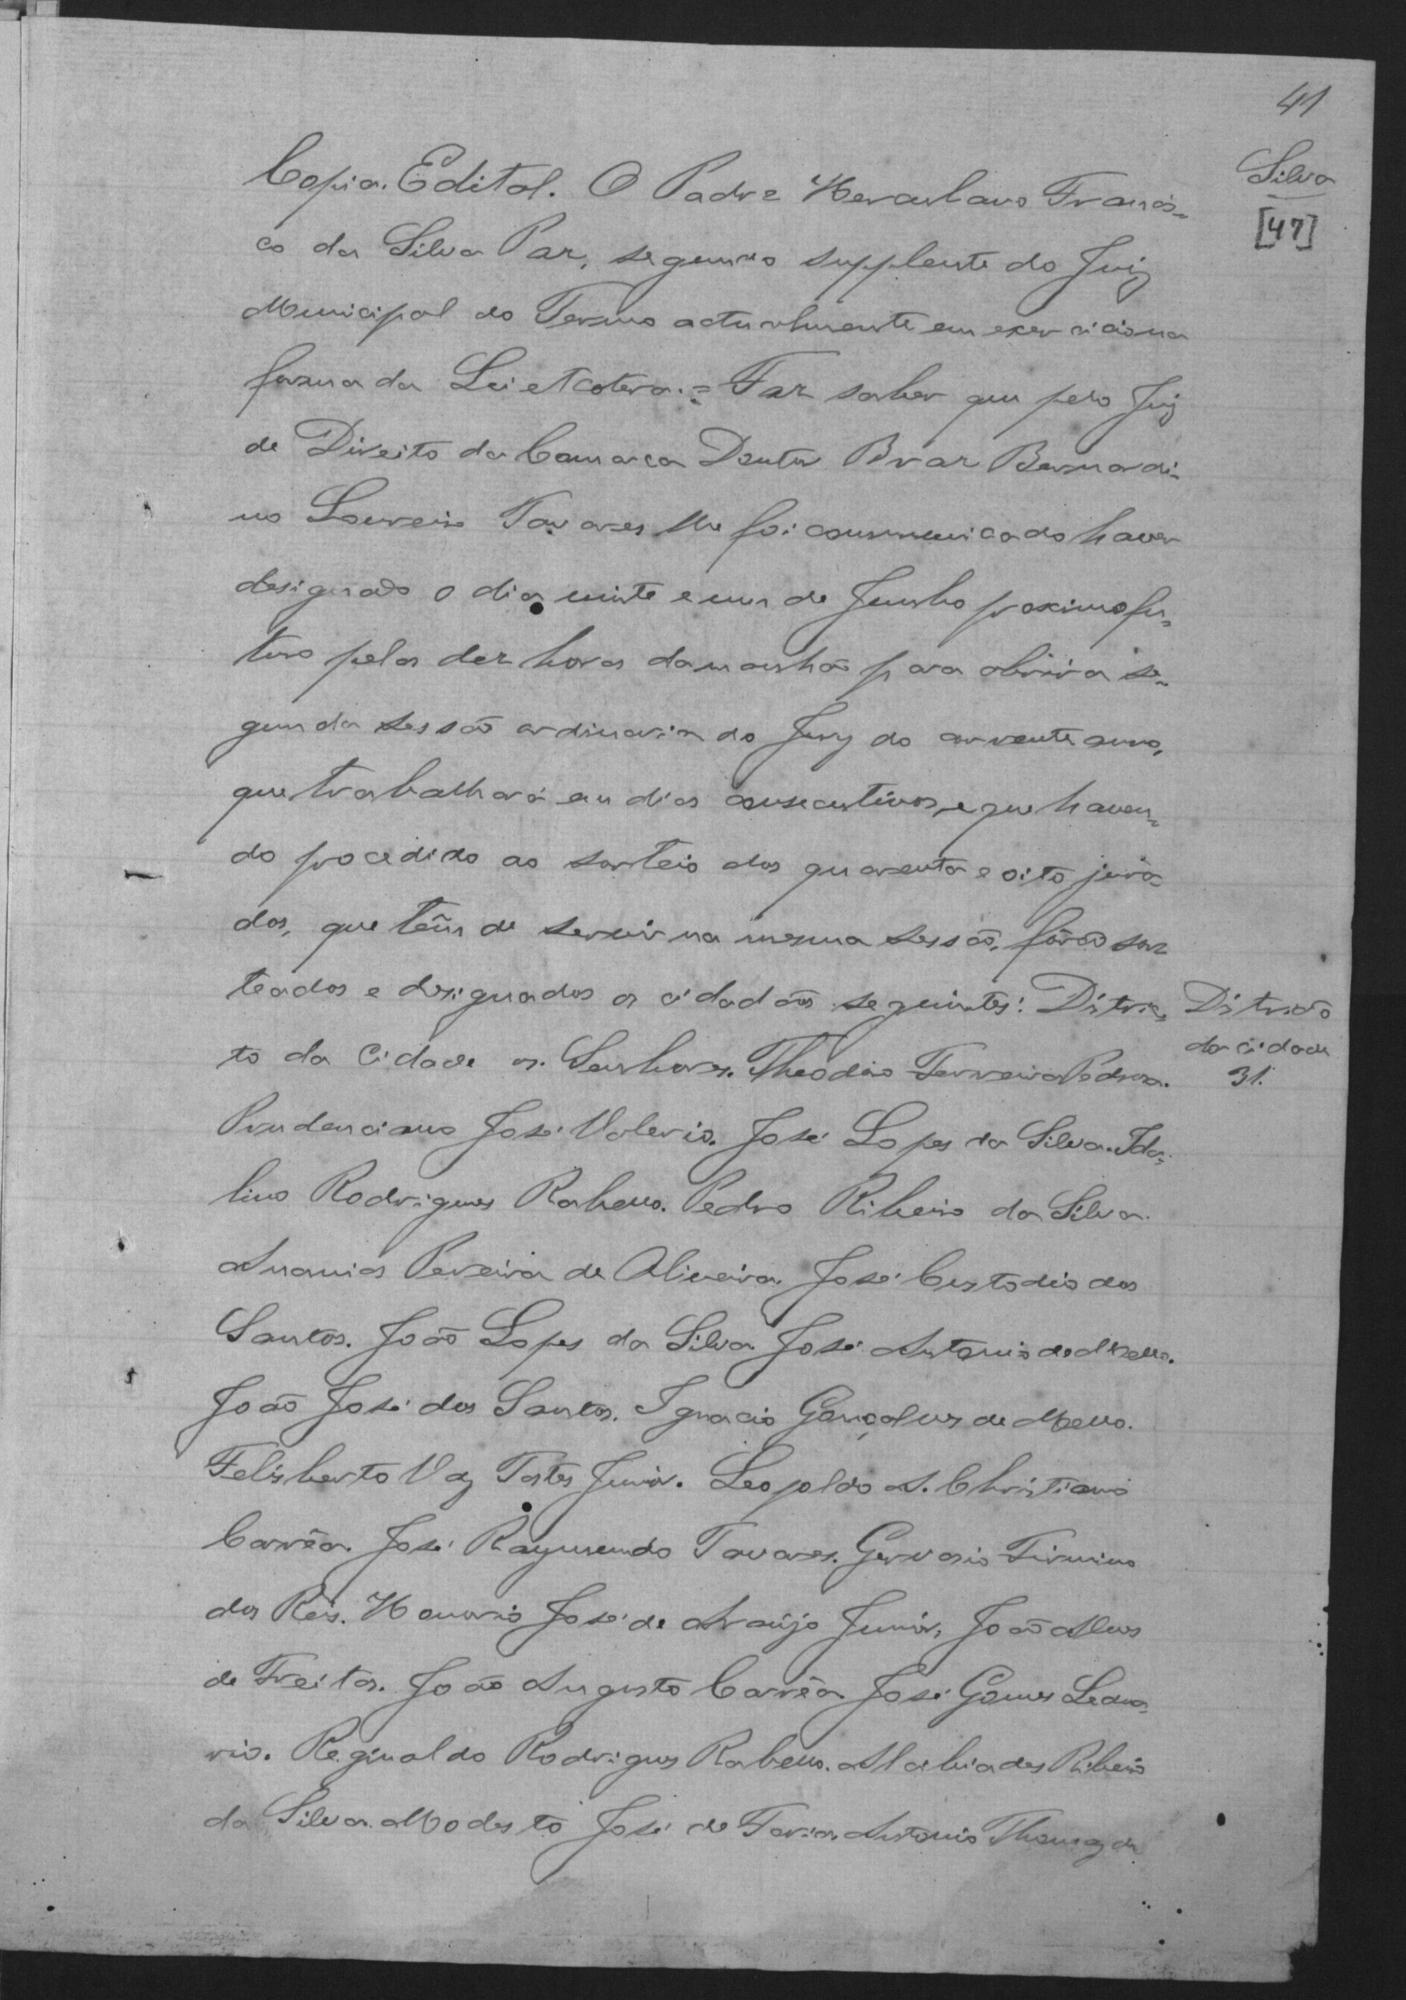 41
Silva
[47]
Copia. Edital. O Padre Herculano Francis-
co da Silva Paz, segundo supplente do Juiz
Municipal do Termo actualmente em exercicio na
forma da Lei etcetera.= Faz saber que pelo Juiz
de Direito da Comarca Doutor Braz Bernardi-
no Loureiro Tavares lhe foi communicado haver
designado o dia vinte e um de Junho proximo fu-
turo pelas dez horas da manhã para abrir a se-
gunda sessão ordinaria do Jury do corrente anno,
que trabalhará em dias consecutivos, e que haven-
do procedido ao sorteio dos quarenta e oito jura-
dos, que têm de servir na mesma sessão, fôrão sor
teados e designados os cidadãos seguintes: Ditric-
to da Cidade os Senhores. Theodoro Ferreira Pedroza.
Ditricto
da cidade
31.
Prudenciano José Valerio. José Lopes da Silva. Ida-
lino Rodrigues Rabello. Pedro Ribeiro da Silva.
Ananias Pereira de Oliveira. José Custodio dos
Santos. João Lopes da Silva. José Antonio de Mello.
João José dos Santos. Ignacio Gonçalves de Mello.
Felisberto Vaz Tostes Junior. Leopoldo A. Christiano
Corrêa. José Raymundo Tavares. Gervasio Firmino
dos Reis. Honorio José de Araujo Junior, João Alves
de Freitas. João Augusto Corrêa. José Gomes Leona-
rio. Reginaldo Rodrigues Rabello. Alcibiades Ribeiro
da Silva. Modesto José de Faria. Antonio Thomaz da